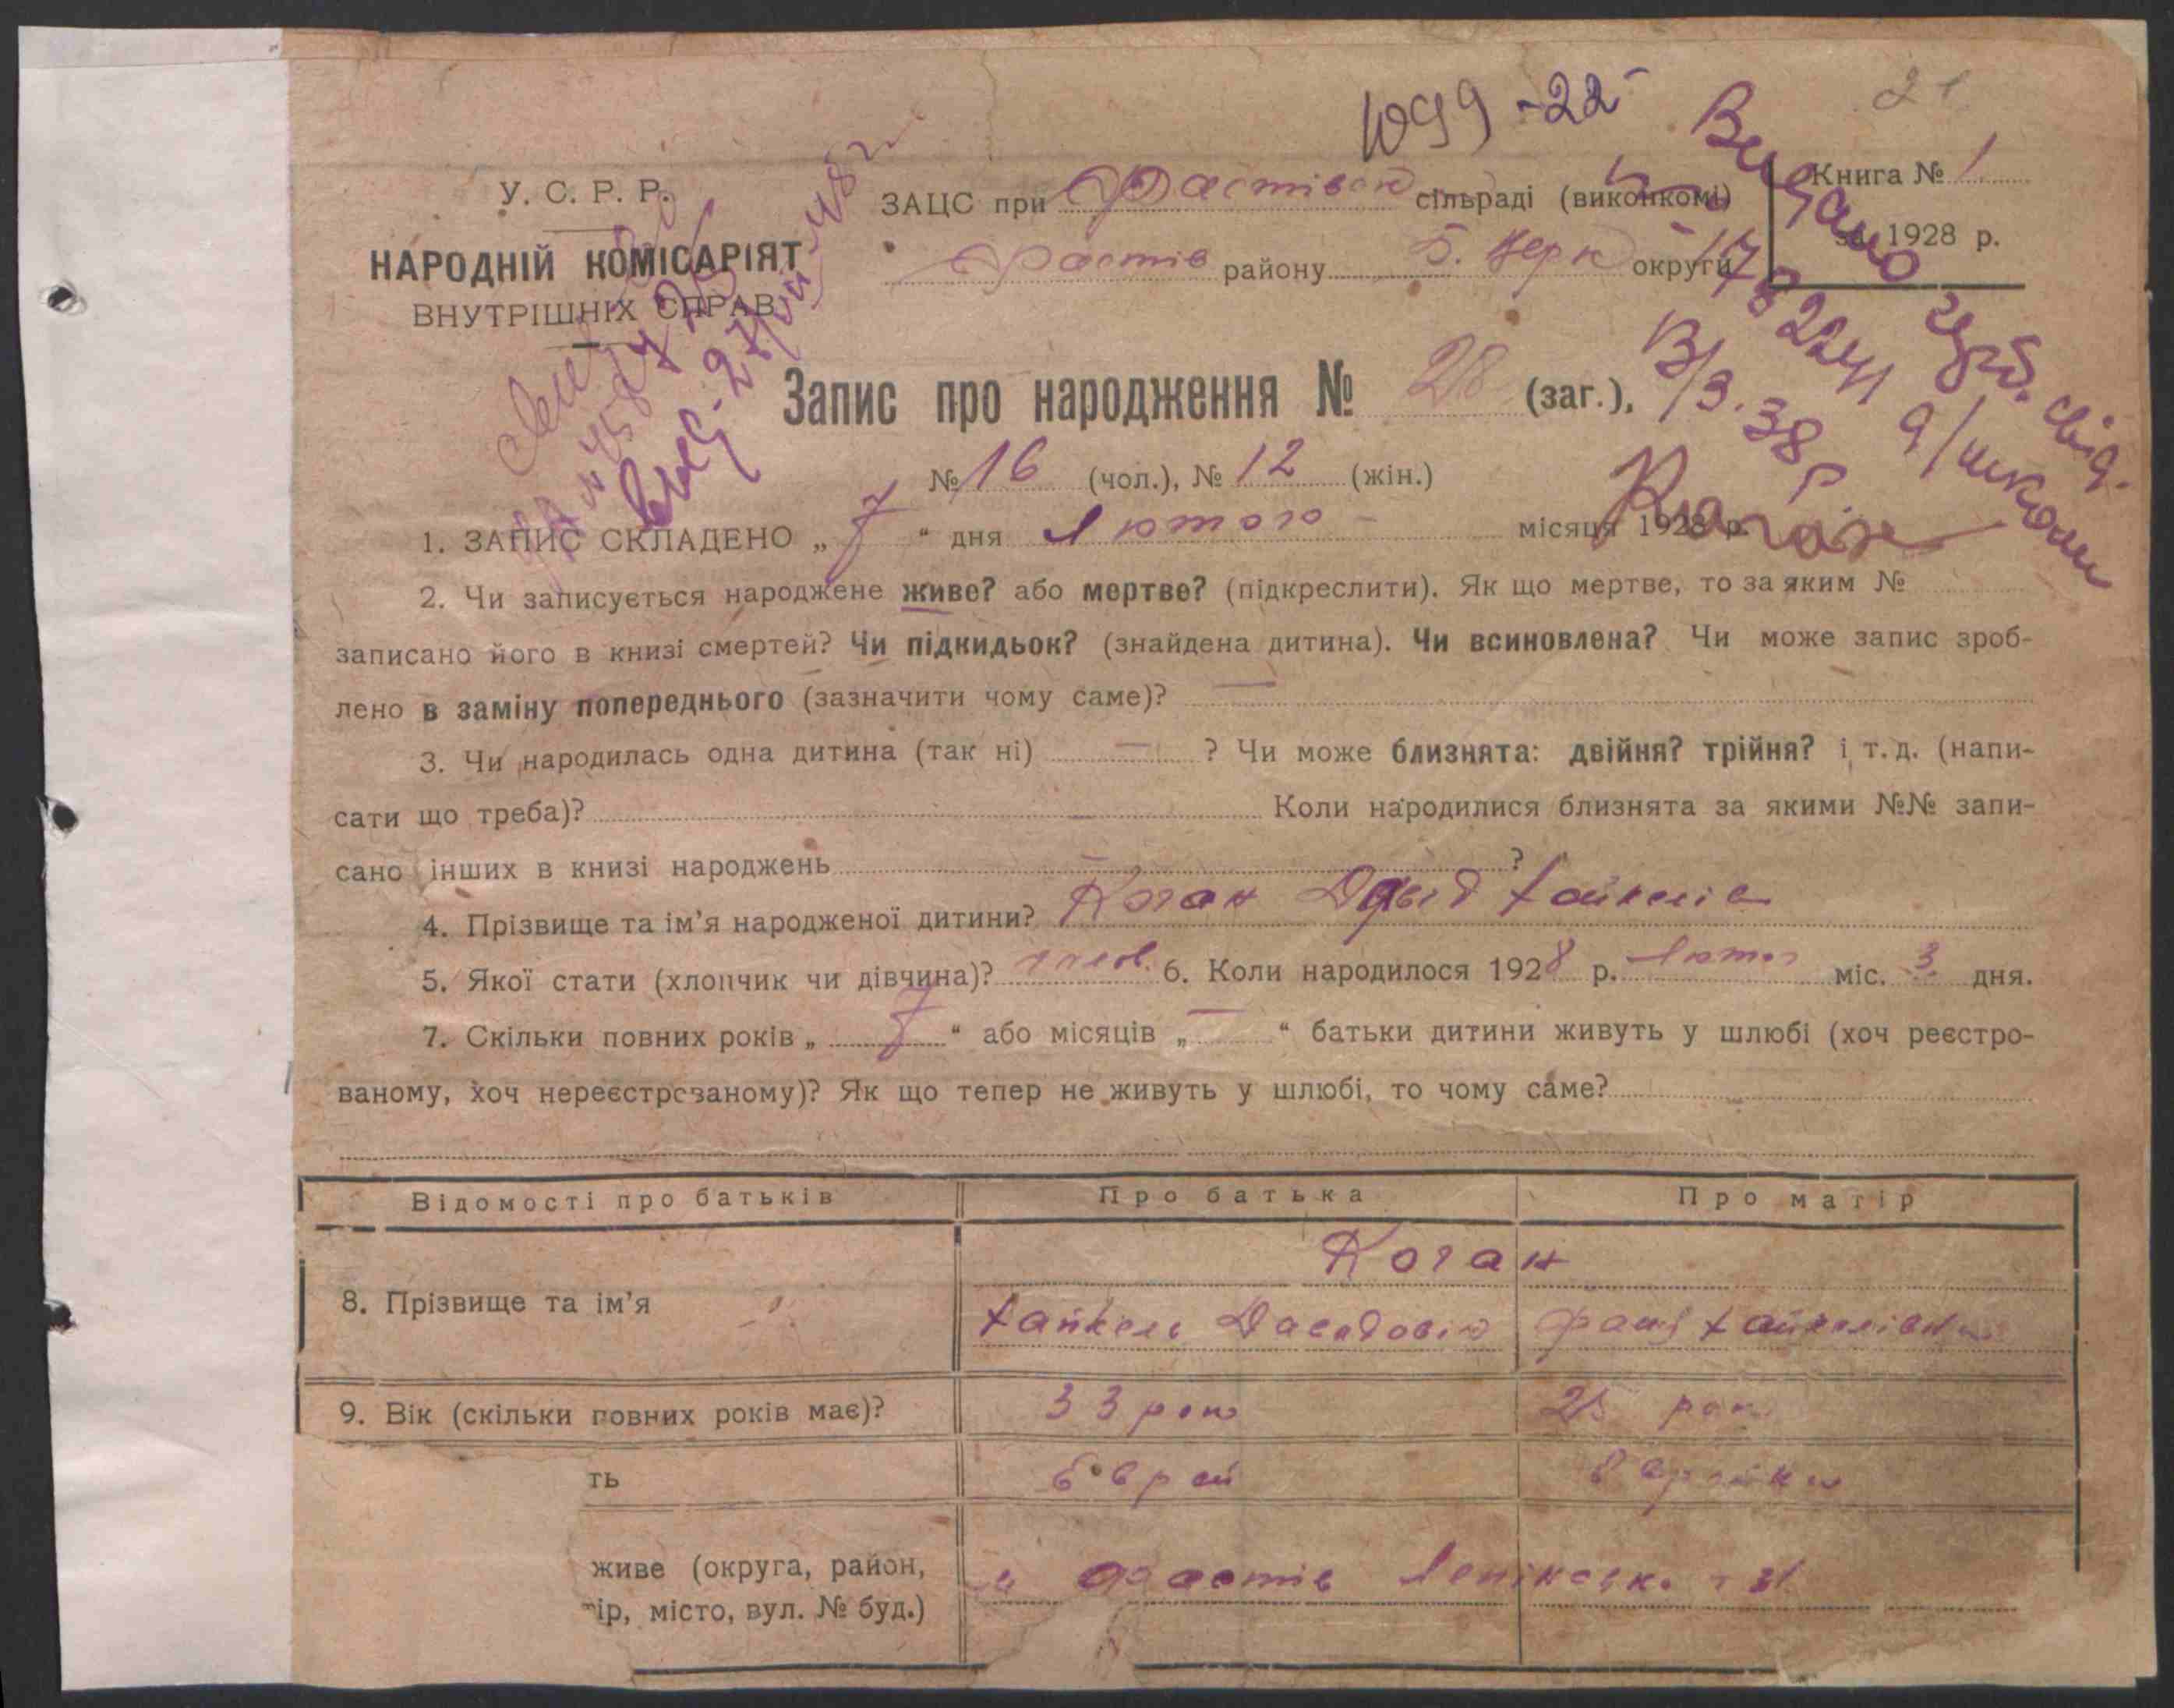 1099-22
21
У. С. Р. Р.
НАРОДНІЙ КОМІСАРІЯТ
ВНУТРІШНІХ СПРАВ
ЗАЦС при Фастівск сільраді (виконкомі)
Фастів району Б. Церк округи
Книга № 1
за 1928 р.
Видано
В/3.38 р
Запис про народження № 28 (заг.),
№ 16 (чол.), № 12 (жін.)
1. ЗАПИС СКЛАДЕНО „ 7 “ дня Лютого місяця 1928 р.
2. Чи записується народжене живе? або мертве? (підкреслити). Як що мертве, то за яким №
записано його в книзі смертей? Чи підкидьок? (знайдена дитина). Чи всиновлена? Чи може запис зроб-
лено в заміну попереднього (зазначити чому саме)? —
3. Чи народилась одна дитина (так ні) — ? Чи може близнята: двійня? трійня? і т. д. (напи-
сати що треба)? Коли народилися близнята за якими №№ запи-
сано інших в книзі народжень — ?
4. Прізвище та ім’я народженої дитини? Коган Давид Хайкелів
5. Якої стати (хлопчик чи дівчина)? чолов. 6. Коли народилося 1928 р. Лютого міс. 3 дня.
7. Скільки повних років „ 7 “ або місяців „ — “ батьки дитини живуть у шлюбі (хоч реєстро-
ваному, хоч нереєстрованому)? Як що тепер не живуть у шлюбі, то чому саме?
Відомості про батьків Про батька Про матір
Коган
8. Прізвище та ім’я Хайкель Давидович Фаня Хайкелівна
9. Вік (скільки повних років має)? 33 рок 25 рок
ть Єврей Єврейка
живе (округа, район,
ір, місто, вул. № буд.) м Фастів Ленінськ. 31